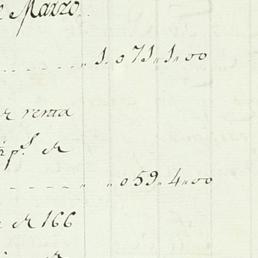 Marzo.
1.071.1.00
renta
p.s de
059.4.00
de 166